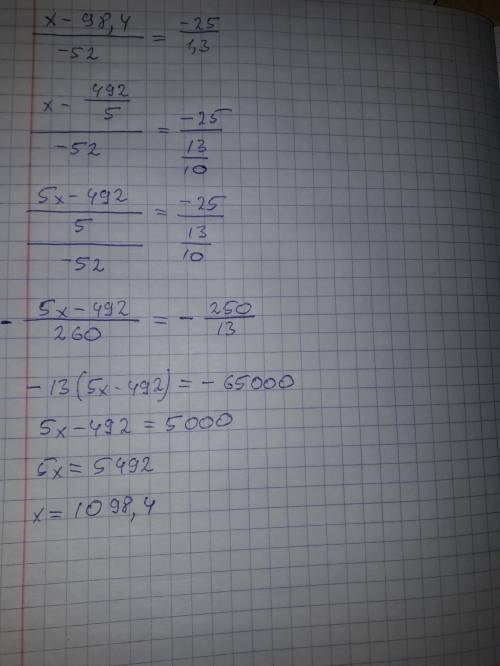 x - 98,4 / -52 = -25 / 1,3
x - 492/5 / -52 = -25 / 13/10
5x - 492 / 5 / -52 = -25 / 13/10
- 5x - 492 / 260 = - 250 / 13
-13(5x - 492) = -65000
5x - 492 = 5000
5x = 5492
x = 1098,4